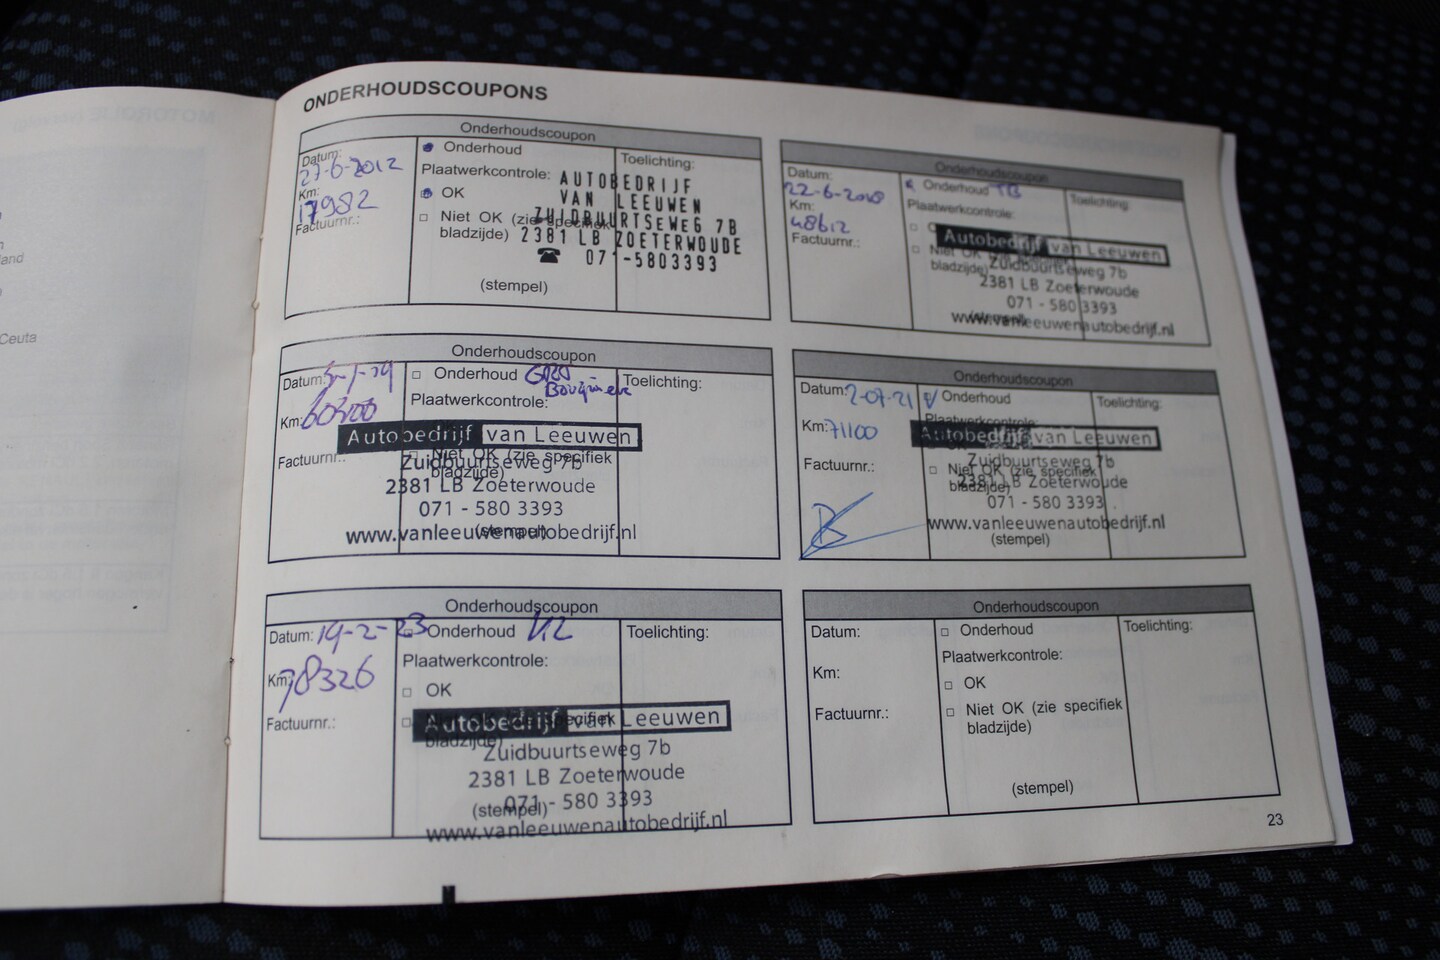 ONDERHOUDSCOUPONS
Onderhoudscoupon
Datum:
27-6-2012
Km:
17982
Factuurnr.:
Onderhoud
Plaatwerkcontrole:
OK
Niet OK (zie specifiek
bladzijde)
(stempel)
Toelichting:
AUTOBEDRIJF
VAN LEEUWEN
ZUIDBUURTSEWEG 7B
2381 LB ZOETERWOUDE
☎ 071-5803393
Onderhoudscoupon
Datum:
22-6-2018
Km:
48612
Factuurnr.:
Onderhoud
Plaatwerkcontrole:
Niet OK (zie specifiek
bladzijde)
(stempel)
Toelichting:
Autobedrijf van Leeuwen
Zuidbuurtseweg 7b
2381 LB Zoeterwoude
071 - 580 3393
www.vanleeuwenautobedrijf.nl
Onderhoudscoupon
Datum:
Km: 60300
Factuurnr.:
Onderhoud
Plaatwerkcontrole:
Niet OK (zie specifiek
bladzijde)
(stempel)
Toelichting:
Autobedrijf van Leeuwen
Zuidbuurtseweg 7b
2381 LB Zoeterwoude
071 - 580 3393
www.vanleeuwenautobedrijf.nl
Onderhoudscoupon
Datum: 2-07-21
Km: 71100
Factuurnr.:
Onderhoud
Plaatwerkcontrole:
Niet OK (zie specifiek
bladzijde)
(stempel)
Toelichting:
Autobedrijf van Leeuwen
Zuidbuurtseweg 7b
2381 LB Zoeterwoude
071 - 580 3393
www.vanleeuwenautobedrijf.nl
Onderhoudscoupon
Datum: 19-2-23
Km: 78326
Factuurnr.:
Onderhoud
Plaatwerkcontrole:
OK
specifiek
bladzijde)
(stempel)
Toelichting:
Autobedrijf van Leeuwen
Zuidbuurtseweg 7b
2381 LB Zoeterwoude
071 - 580 3393
www.vanleeuwenautobedrijf.nl
Onderhoudscoupon
Datum:
Km:
Factuurnr.:
Onderhoud
Plaatwerkcontrole:
OK
Niet OK (zie specifiek
bladzijde)
(stempel)
Toelichting:
23
Ceuta